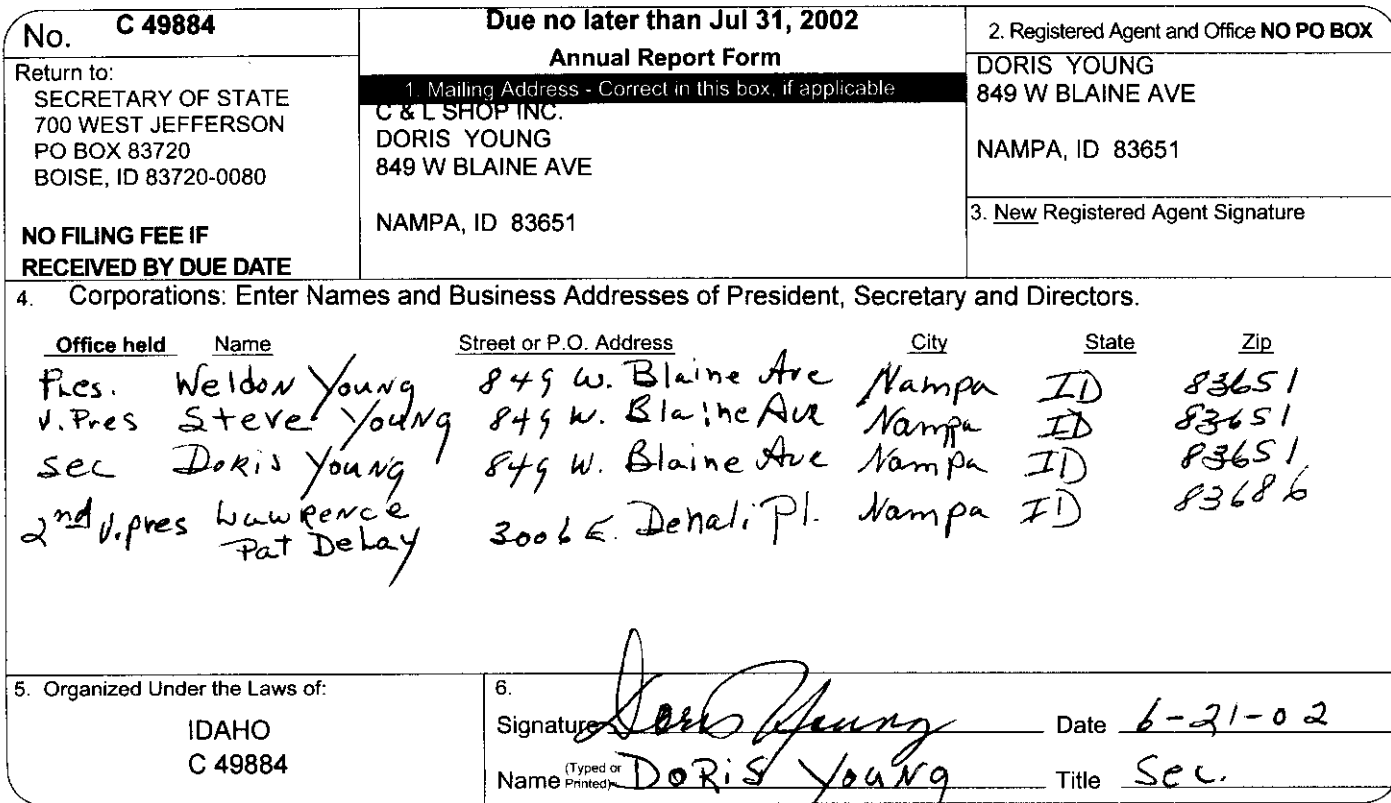 No. C 49884
Return to:
SECRETARY OF STATE
700 WEST JEFFERSON
PO BOX 83720
BOISE, ID 83720-0080
NO FILING FEE IF
RECEIVED BY DUE DATE
Due no later than Jul 31, 2002
Annual Report Form
1. Mailing Address - Correct in this box, if applicable
C & L SHOP INC.
DORIS YOUNG
849 W BLAINE AVE
NAMPA, ID 83651
2. Registered Agent and Office NO PO BOX
DORIS YOUNG
849 W BLAINE AVE
NAMPA, ID 83651
3. New Registered Agent Signature
4. Corporations: Enter Names and Business Addresses of President, Secretary and Directors.
Office held Name Street or P.O. Address City State Zip
Pres. Weldon Young 849 W. Blaine Ave Nampa ID 83651
V. Pres Steve Young 849 W. Blaine Ave Nampa ID 83651
Sec Doris Young 849 W. Blaine Ave Nampa ID 83651
2nd V. pres Lawrence Pat DeLay 3006 E. Denali Pl. Nampa ID 83686
5. Organized Under the Laws of:
IDAHO
C 49884
6.
Signature Doris Young Date 6-21-02
Name (Typed or Printed) DORiS YouNg Title Sec.